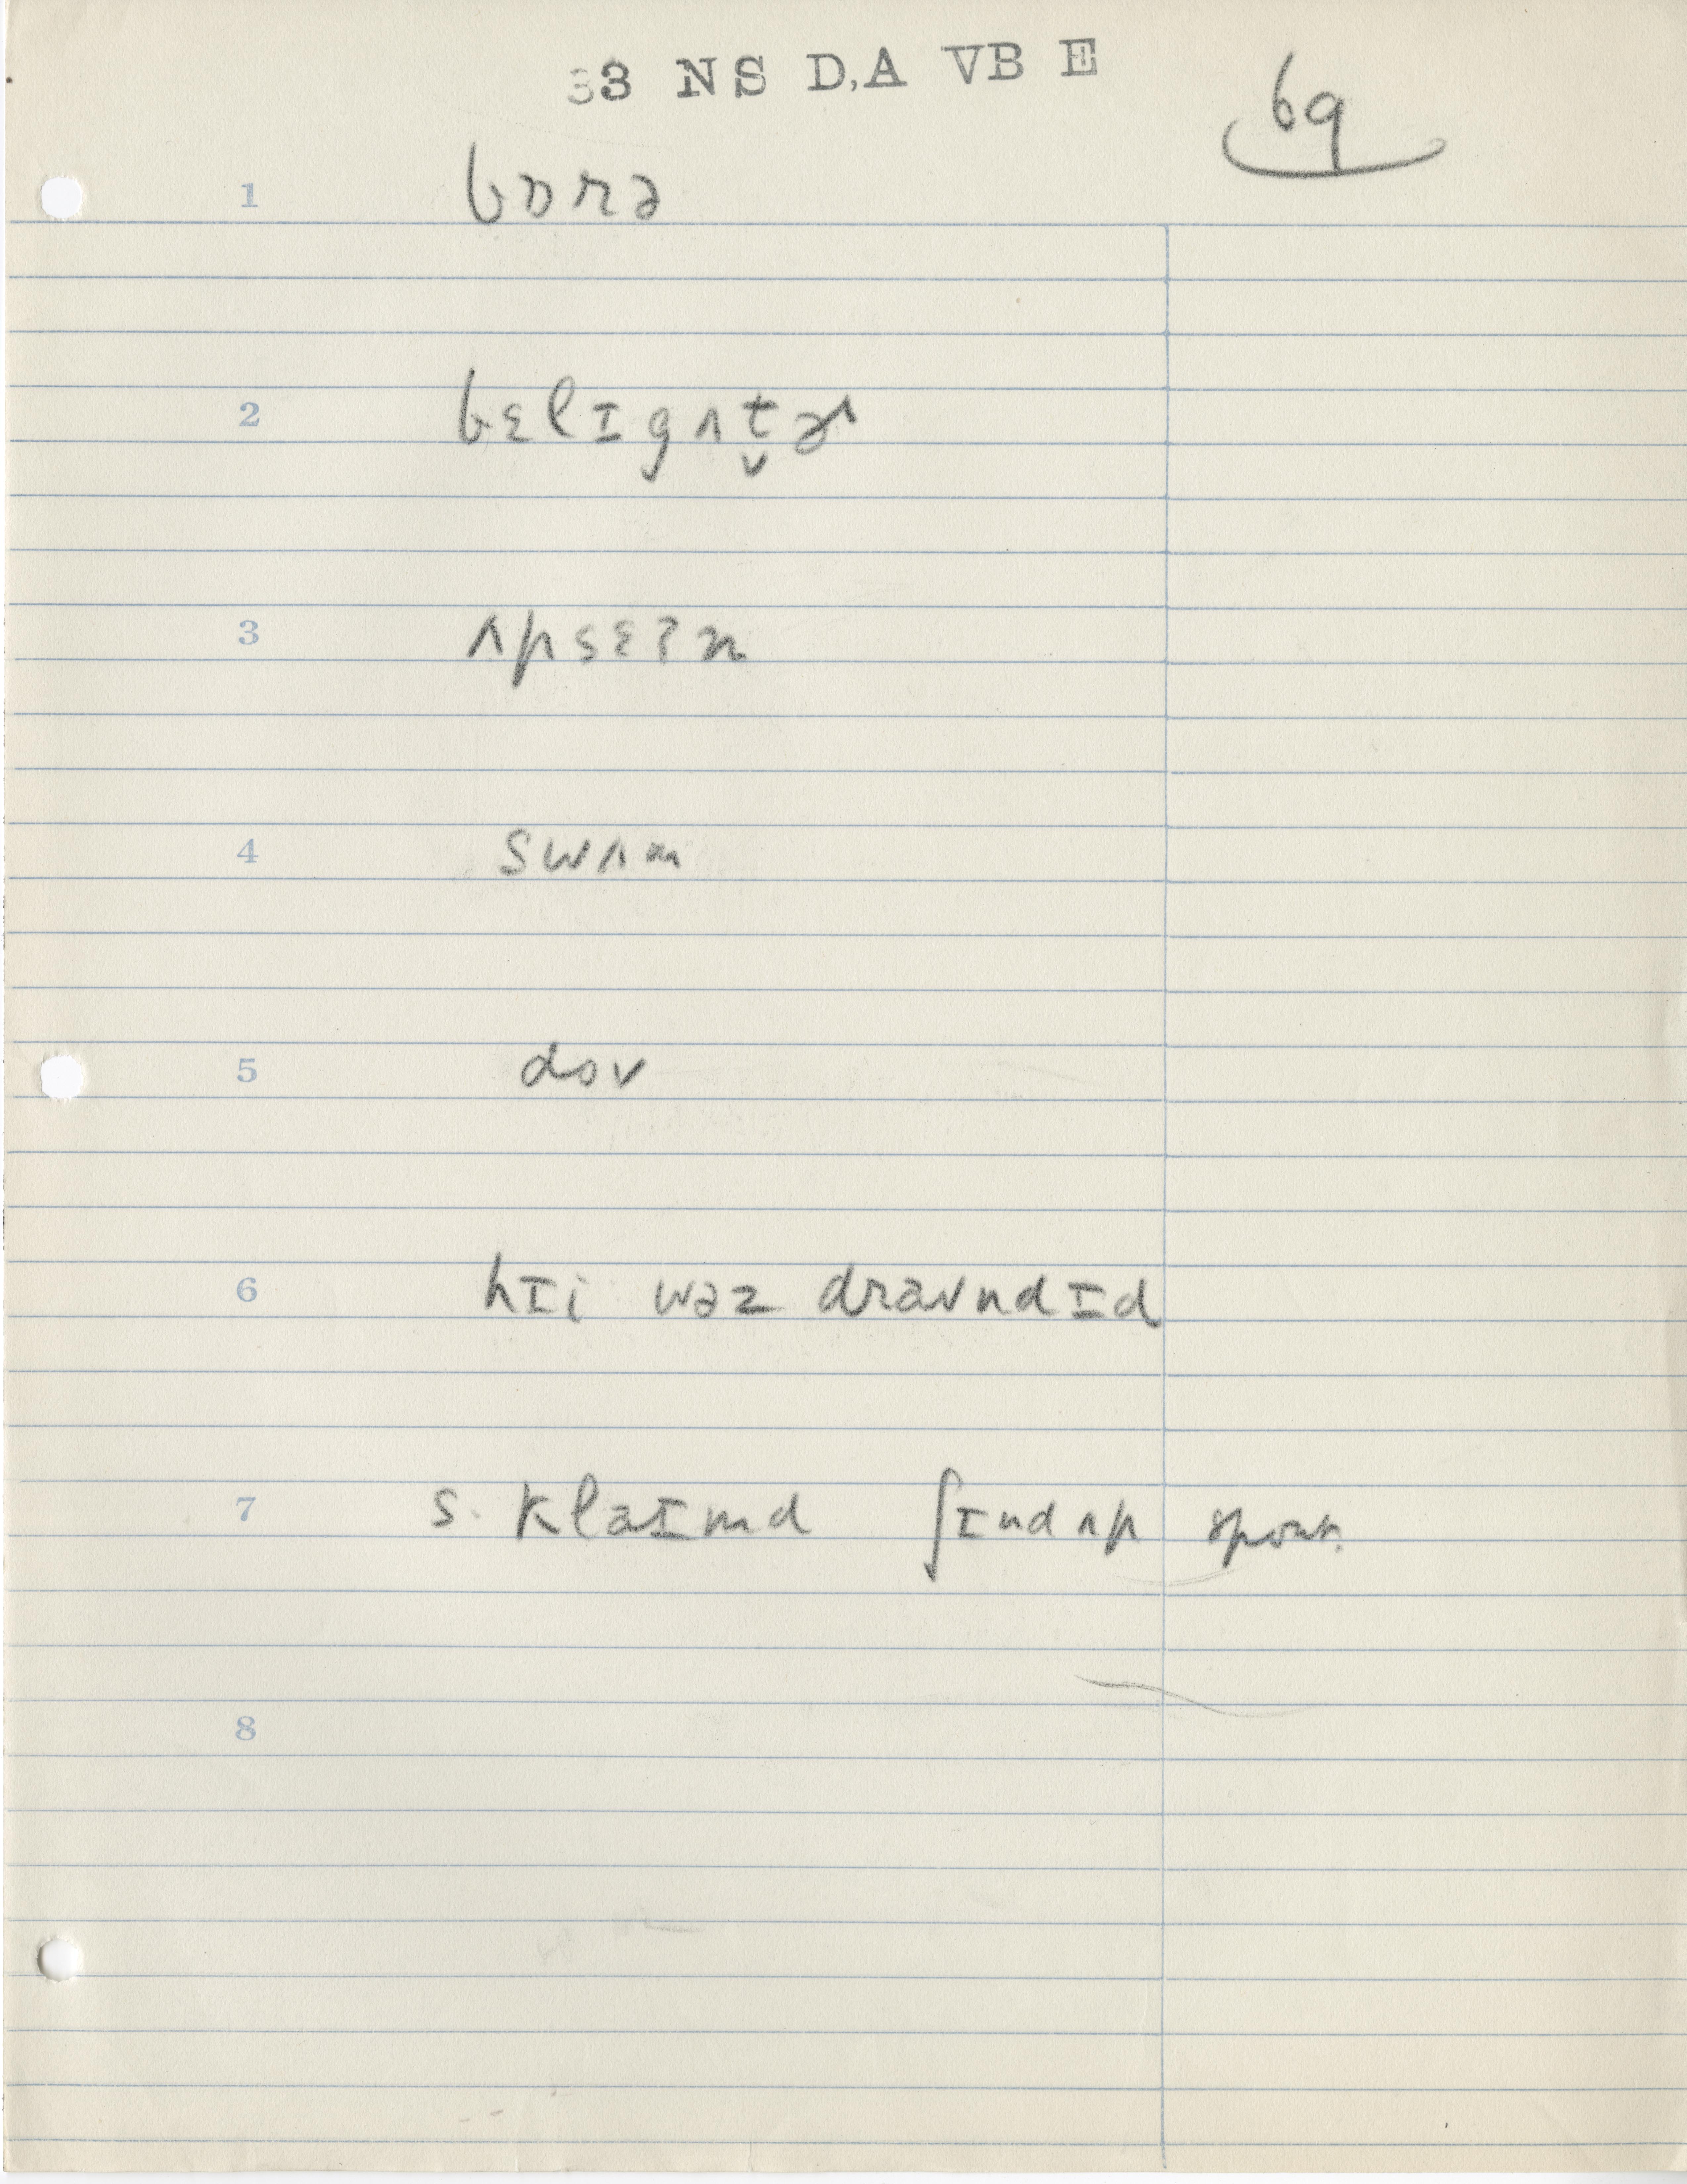 33 NS D,A VB E
69
1 bɒrə
2 bɛlɪgʌt̬ɚ
3 ʌpsɛʔn
4 swʌm
5 dov
6 hɪi wəz draʊndɪd
7 s. klaɪmd ʃɪnd ʌp spon.
8